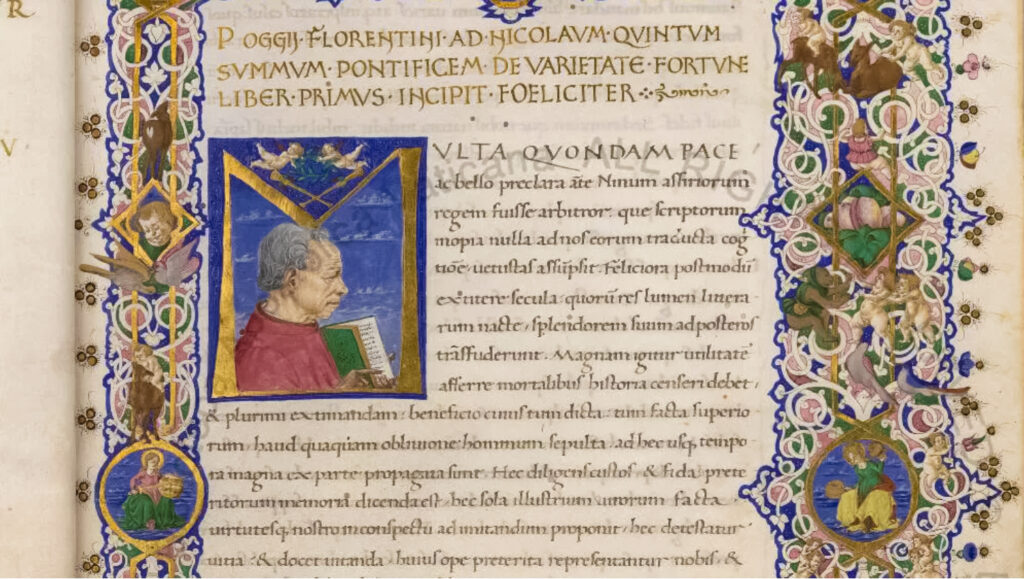 R
V
POGGII·FLORENTINI·AD·NICOLAVM·QVINTVM
SVMMVM·PONTIFICEM·DE VARIETATE·FORTVNE
LIBER·PRIMVS·INCIPIT·FOELICITER
MVLTA QVONDAM PACE
ac bello preclara ãte Ninum assiriorum
regem fuisse arbitror· que scriptorum
inopia nulla ad nos eorum traducta cog
tiõe·uetustas assũpsit·Feliciora postmodũ
extitere secula·quorũ res lumen littera
rum nacte·splendorem suum ad posteros
trãsfuderunt·Magnam igitur utilitatẽ
afferre mortalibus historia censeri debet·
& plurimi existimandam·beneficio cuius tum dicta·tum facta superio
rum·haud quaquam obliuione hominum sepulta·ad hec usq; tempo
ra magna ex parte propagata sunt·Hec diligens custos·& fida prete
ritorum memoria dicenda est·hec sola illustrium uirorum facta
uirtutesq; nostro in conspectu ad imitandum proponit·hec detestatur
uitia·& docet uitanda·huius ope preterita representantur nobis·&
aticana ALL RIG